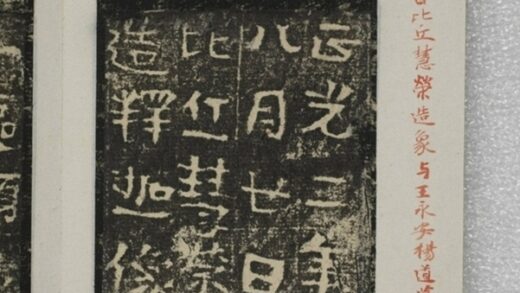 比丘慧榮造象与王永安楊道
正光三年
八月廿日
比丘慧榮
造釋迦像